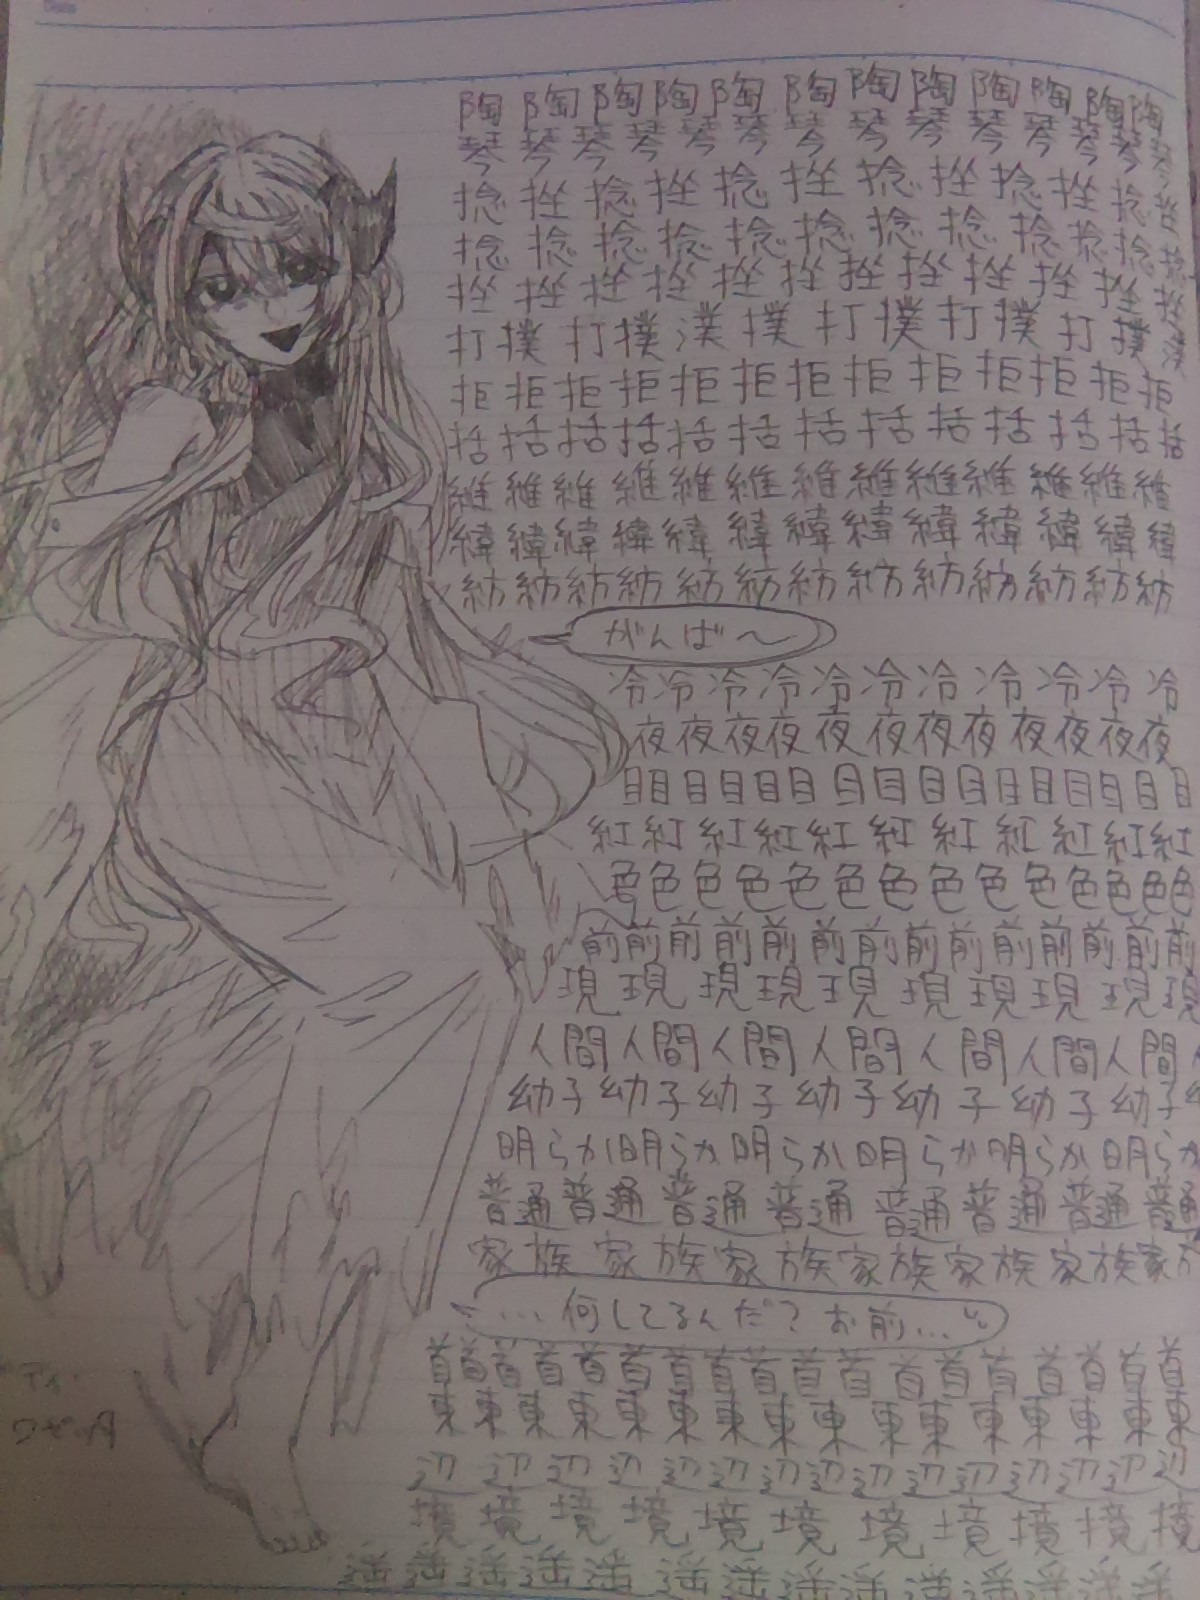 陶陶陶陶陶陶陶陶陶陶陶陶
琴琴琴琴琴琴琴琴琴琴琴琴
捻挫捻挫捻挫捻挫捻挫捻挫
捻捻捻捻捻捻捻捻捻捻捻捻
挫挫挫挫挫挫挫挫挫挫挫挫
打撲打撲漢撲打撲打撲打撲漢
拒拒拒拒拒拒拒拒拒拒拒拒拒
括括括括括括括括括括括括括
維維維維維維維維維維維維維
緯緯緯緯緯緯緯緯緯緯緯緯緯
紡紡紡紡紡紡紡紡紡紡紡紡紡
がんば〜
冷冷冷冷冷冷冷冷冷冷冷
夜夜夜夜夜夜夜夜夜夜夜夜
目目目目目目目目目目目目目目目
紅紅紅紅紅紅紅紅紅紅紅
色色色色色色色色色色色色色
前前前前前前前前前前前前前前
現現現現現現現現現現
人間人間人間人間人間人間人間
幼子幼子幼子幼子幼子幼子幼子
明らか明らか明らか明らか明らか明らか
普通普通普通普通普通普通普通普通
家族家族家族家族家族家族家族
…何してるんだ?お前…
首首首首首首首首首首首首首首首首
東東東東東東東東東東東東東東東
辺辺辺辺辺辺辺辺辺辺辺辺辺辺
境境境境境境境境境境境
遥遥遥遥遥遥遥遥遥遥遥遥遥